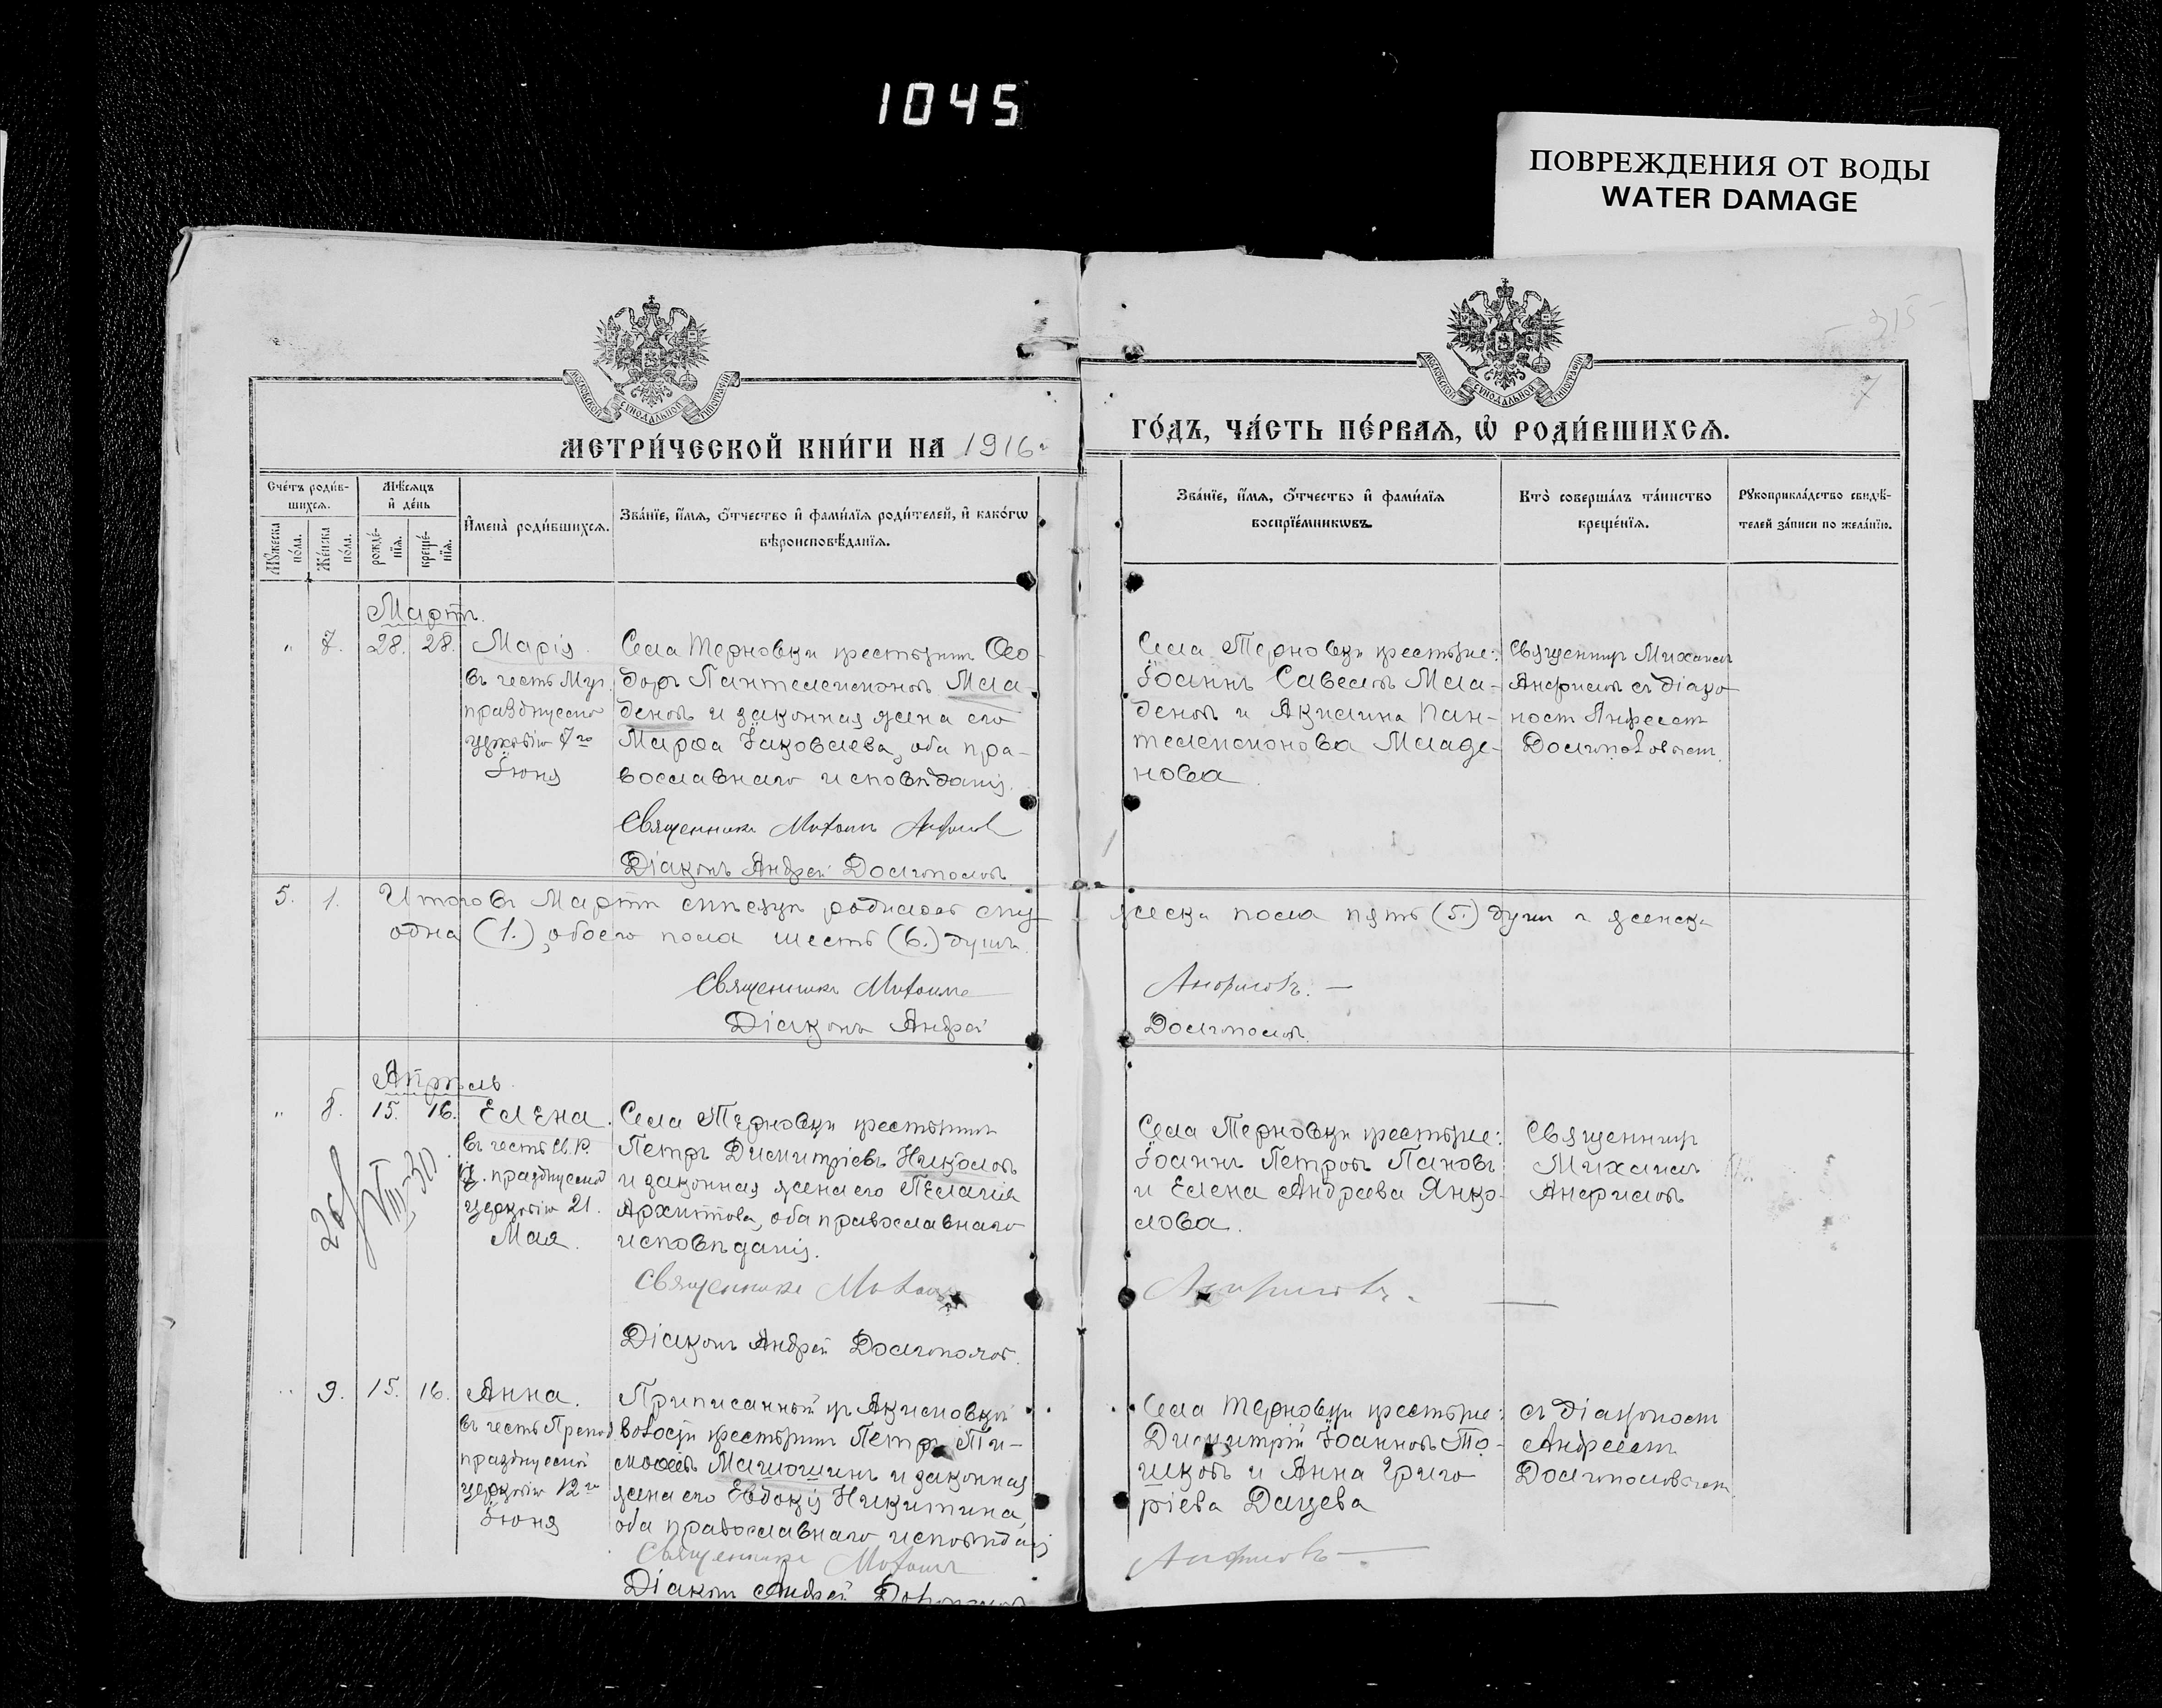 1045
ПОВРЕЖДЕНИЯ ОТ ВОДЫ
WATER DAMAGE
315
7
МОСКОВСКОЙ СѴНОДАЛЬНОЙ ТИПОГРАФІИ
МОСКОВСКОЙ СѴНОДАЛЬНОЙ ТИПОГРАФІИ
МЕТРИ́ЧЕСКОЙ КНИ́ГИ НА 1916 г
ГО́ДЪ, ЧА́СТЬ ПЕ́РВАЯ, Ѡ҆ РОДИ́ВШИХСЯ.
Сче́тъ роди́в-
шихся.
Мꙋ́жеска
по́ла.
Же́нска
по́ла.
Мѣ́сяцъ
и҆ де́нь
рожде́-
нїя.
креще́-
нїя.
И҆мена̀ роди́вшихся.
Зва́нїе, и҆́мя, ѻ҆́тчество и҆ фами́лїя роди́телей, и҆ како́гѡ
вѣроисповѣ́данїя.
Зва́нїе, и҆́мя, ѻ҆́тчество и҆ фами́лїя
воспрїе́мникѡвъ.
Кто̀ соверша́лъ та́инство
креще́нїя.
Рꙋкоприкла́дство свидѣ́-
телей за́писи по жела́нїю.
Мартъ.
„ 7. 28. 28. Марія.
въ честь Муч.
празднуемой
церковію 7го
Іюня
Села Терновки крестьянинъ Ѳео-
доръ Пантелеимоновъ Мла-
деновъ и законная жена его
Марѳа Іаковлева, оба пра-
вославнаго исповѣданія.
Священникъ Михаилъ Анфимовъ
Діаконъ Андрей Долгополовъ
Села Терновки крестьяне:
Іоаннъ Савеловъ Мла-
деновъ и Акилина Пан-
телеимонова Младе-
нова
Священникъ Михаилъ
Анфимовъ съ діако-
номъ Андреемъ
Долгополовымъ.
5. 1. Итого въ Мартѣ мѣсяцѣ родилось му-
жеска пола пять (5.) душъ и женска
одна (1.), обоего пола шесть (6.) душъ.
Священникъ Михаилъ Анфимовъ. —
Діаконъ Андрей Долгополовъ.
Апрѣль
„ 8. 15. 16. Елена.
въ честь св. Р.
Ц. празднуемой
церковію 21.
Мая.
VIII-30
Села Терновки крестьянинъ
Петръ Димитріевъ Николовъ
и законная жена его Пелагія
Архипова, оба православнаго
исповѣданія.
Священникъ Михаилъ Анфимовъ. —
Діаконъ Андрей Долгополовъ.
Села Терновки крестьяне:
Іоаннъ Петровъ Пановъ
и Елена Андреева Янко-
лова.
Священникъ
Михаилъ
Анфимовъ
„ 9. 15. 16. Анна.
въ честь Препод.
празднуемой
церковію 12го
Іюня
Приписанный къ Акимовкѣ
волости крестьянинъ Петръ Ти-
моѳеевъ Матюшинъ и законная
жена его Евдокія Никитина,
оба православнаго исповѣданія
Священникъ Михаилъ Анфимовъ —
Діаконъ Андрей Долгополовъ
Села Терновки крестьяне:
Димитрій Іоанновъ То-
шковъ и Анна Григо-
ріева Дацева
съ діакономъ
Андреемъ
Долгополовымъ.